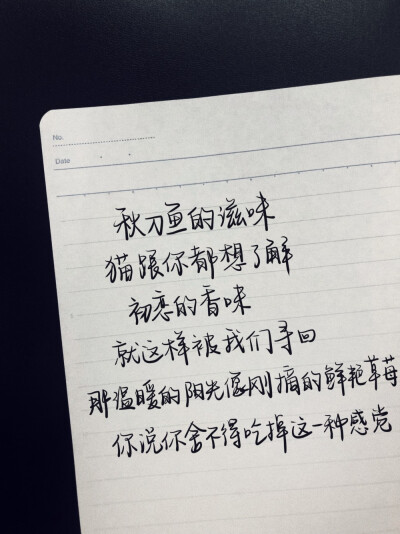 No.
Date
秋刀鱼的滋味
猫跟你都想了解
初恋的香味
就这样被我们寻回
那温暖的阳光像刚摘的鲜艳草莓
你说你舍不得吃掉这一种感觉